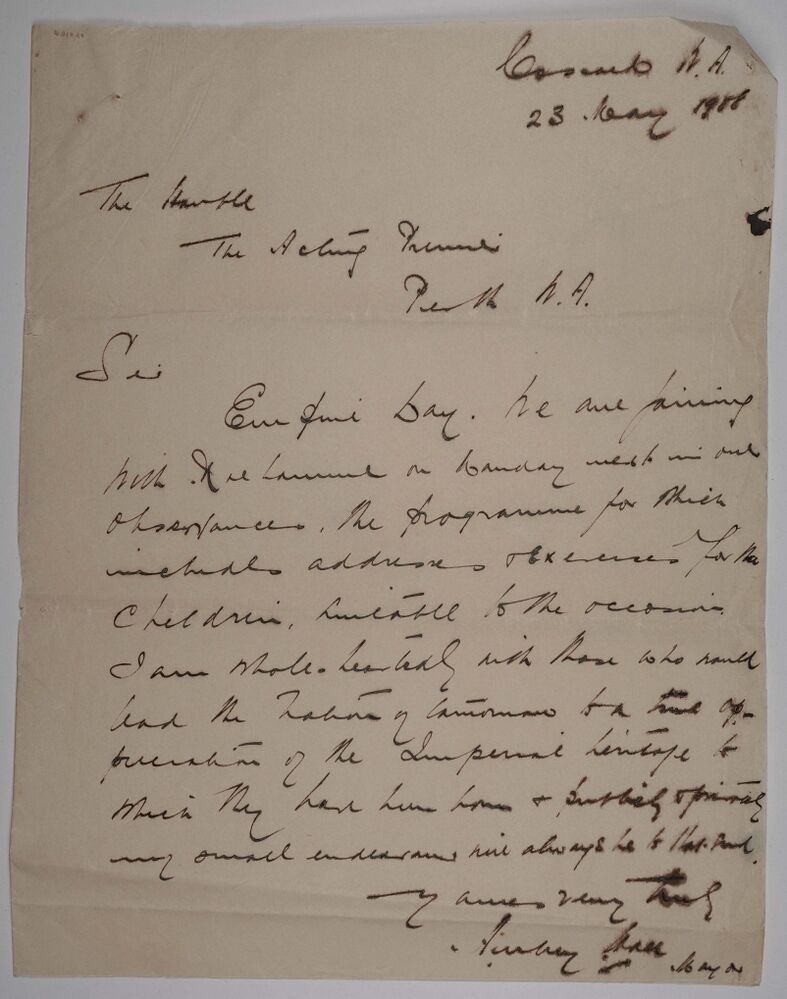 Cossack W. A.
23 May 1908
The Honble
The Acting Premier
Perth W. A.
Sir
Empire Day. We are joining
with Roebourne on Monday next in our
observances, the programme for which
includes addresses & exercises for the
children, suitable to the occasion.
I am whole-heartedly with those who would
lead the Nation of tomorrow to a true ap-
preciation of the Imperial heritage to
which they have been born & publicly & privately
my small endeavours will always be to that end.
Yours very truly
Mayor